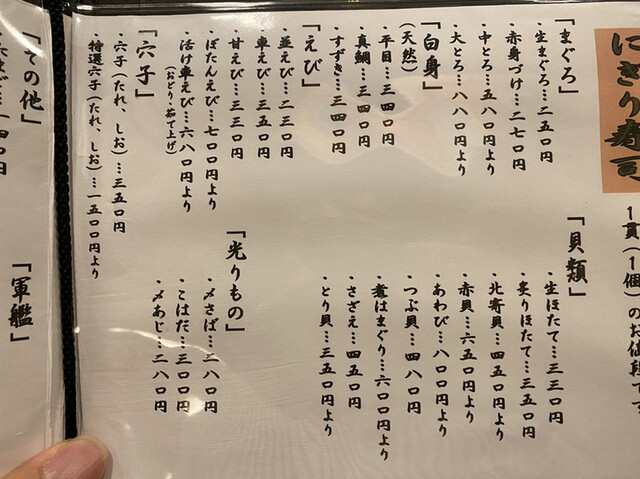 にぎり寿司
1貫(1個)のお値段です
「まぐろ」
・生まぐろ…二五〇円
・赤身づけ…二七〇円
・中とろ…五八〇円より
・大とろ…八八〇円より
「白身」
(天然)
・平目…三四〇円
・真鯛…三四〇円
・すずき…三四〇円
「えび」
・並えび…二三〇円
・車えび…三五〇円
・甘えび…三三〇円
・ぼたんえび…七〇〇円より
・活け車えび…六八〇円より
(おどり・茹で上げ)
「穴子」
・穴子(たれ、しお)…三五〇円
・特選穴子(たれ、しお)…一五〇〇円より
「貝類」
・生ほたて…三三〇円
・炙りほたて…三五〇円
・北寄貝…四五〇円より
・赤貝…六五〇円より
・あわび…八〇〇円より
・つぶ貝…四八〇円
・煮はまぐり…六〇〇円より
・さざえ…四五〇円
・とり貝…三五〇円より
「光りもの」
・〆さば…二八〇円
・こはだ…三〇〇円
・〆あじ…二八〇円
「その他」
「軍艦」